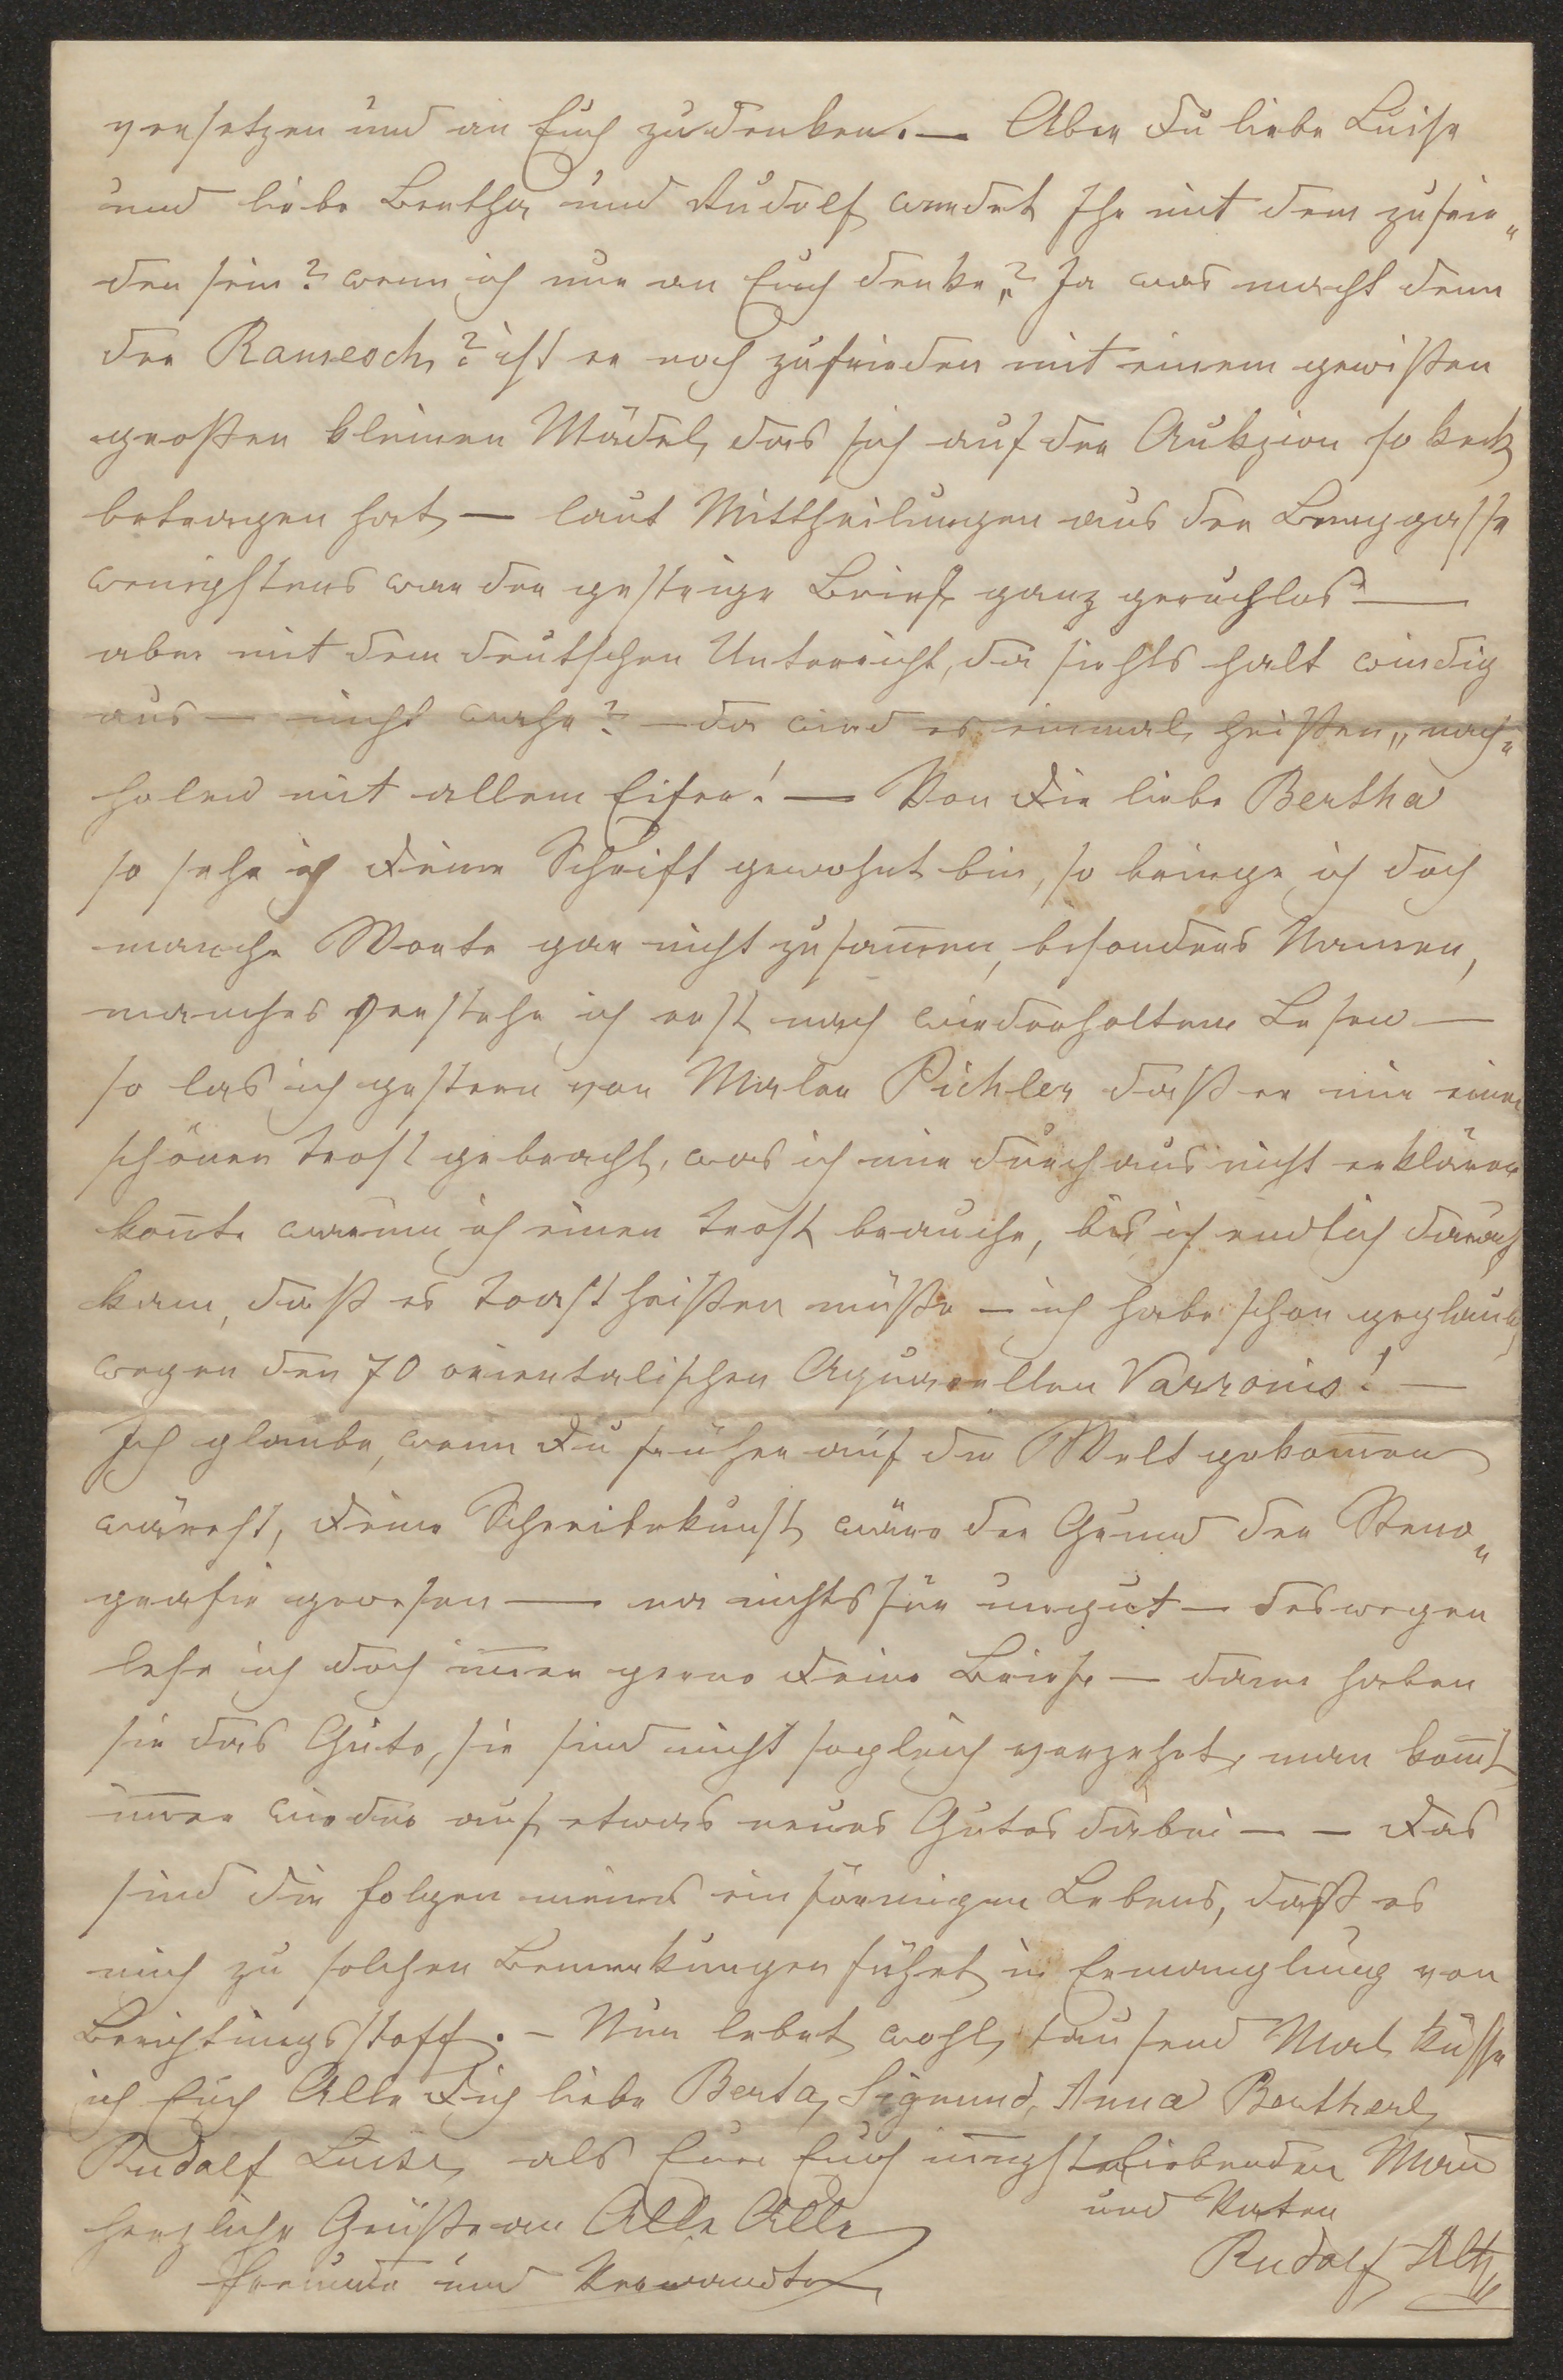 versetzen und an Euch zu denken. — Aber Du liebe Luise
und liebe Bertha und Rudolf werdet Ihr mit dem zufrie„
den sein? wenn ich nur an Euch denke? Ja was macht denn
der Ramesch? ist er noch zufrieden mit einem gewißen
großen kleinen Mädel, das sich auf der Aukzion so keck
betragen hat — laut Mittheilungen aus der Berggasse
wenigstens war der gestrige Brief ganz geruchlos —
aber mit dem deutschen Unterricht, da siehts halt windig
aus — nicht wahr? — da wird es einmal heißen „nach„
holen mit allem Eifer! — Von Dir liebe Bertha
so sehr ich Deine Schrift gewohnt bin, so bringe ich doch
manche Worte gar nicht zusam̅en, besonders Namen,
manches verstehe ich erst nach wiederholtem Lesen —
so las ich gestern von Maler Pichler daß er mir einen
schönen Trost gebracht, was ich mir durchaus nicht erklären
kon̅te warum ich einen Trost brauche, bis ich endlich darauf
kam, daß es Toast heißen müße — ich habe schon geglaubt
wegen den 70 orientalischen Aquarellen Varronis! —
Ich glaube, wenn Du früher auf die Welt gekom̅en
wärest, Deine Schreibekunst wäre der Grund der Steno„
grafie gewesen — na nichts für ungut — deswegen
lese ich doch im̅er gerne Deine Briefe — dann haben
sie das Gute, sie sind nicht sogleich verzehrt, man kom̅t
im̅er wieder auf etwas neues Gutes dabei — — Das
sind die Folgen meines einförmigen Lebens, daß es
mich zu solchen Bemerkungen führt in Ermanglung von
Berichtungsstoff. — Nun lebet wohl, tausend Mal küsse
ich Euch Alle Dich liebe Berta, Sigmund, Anna Bertherl
Rudolf Luise, als Euer Euch in̅igst liebender Man̅
und Vater
herzliche Grüße an Alle Alle
Freunde und Verwandte
Rudolf Alt